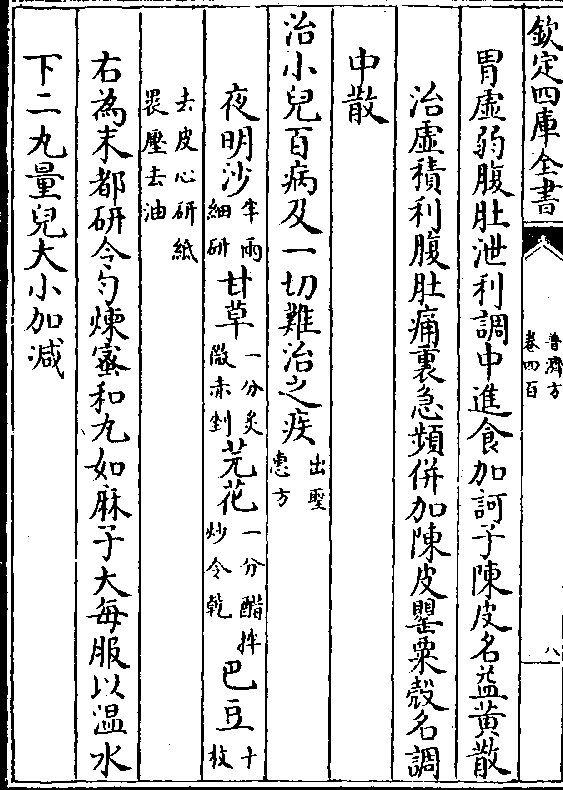 欽定四庫全書
普濟方
卷四百
八
胃虛弱腹肚泄利調中進食加訶子陳皮名益黃散
治虛積利腹肚痛裏急頻併加陳皮罌粟殼名調
中散
治小兒百病及一切難治之疾出聖惠方
夜明沙半兩細研甘草一分炙微赤剉芫花一分醋拌炒令乾巴豆十枚
去皮心研紙裹壓去油
右為末都研令勻煉蜜和丸如麻子大每服以溫水
下二丸量兒大小加減